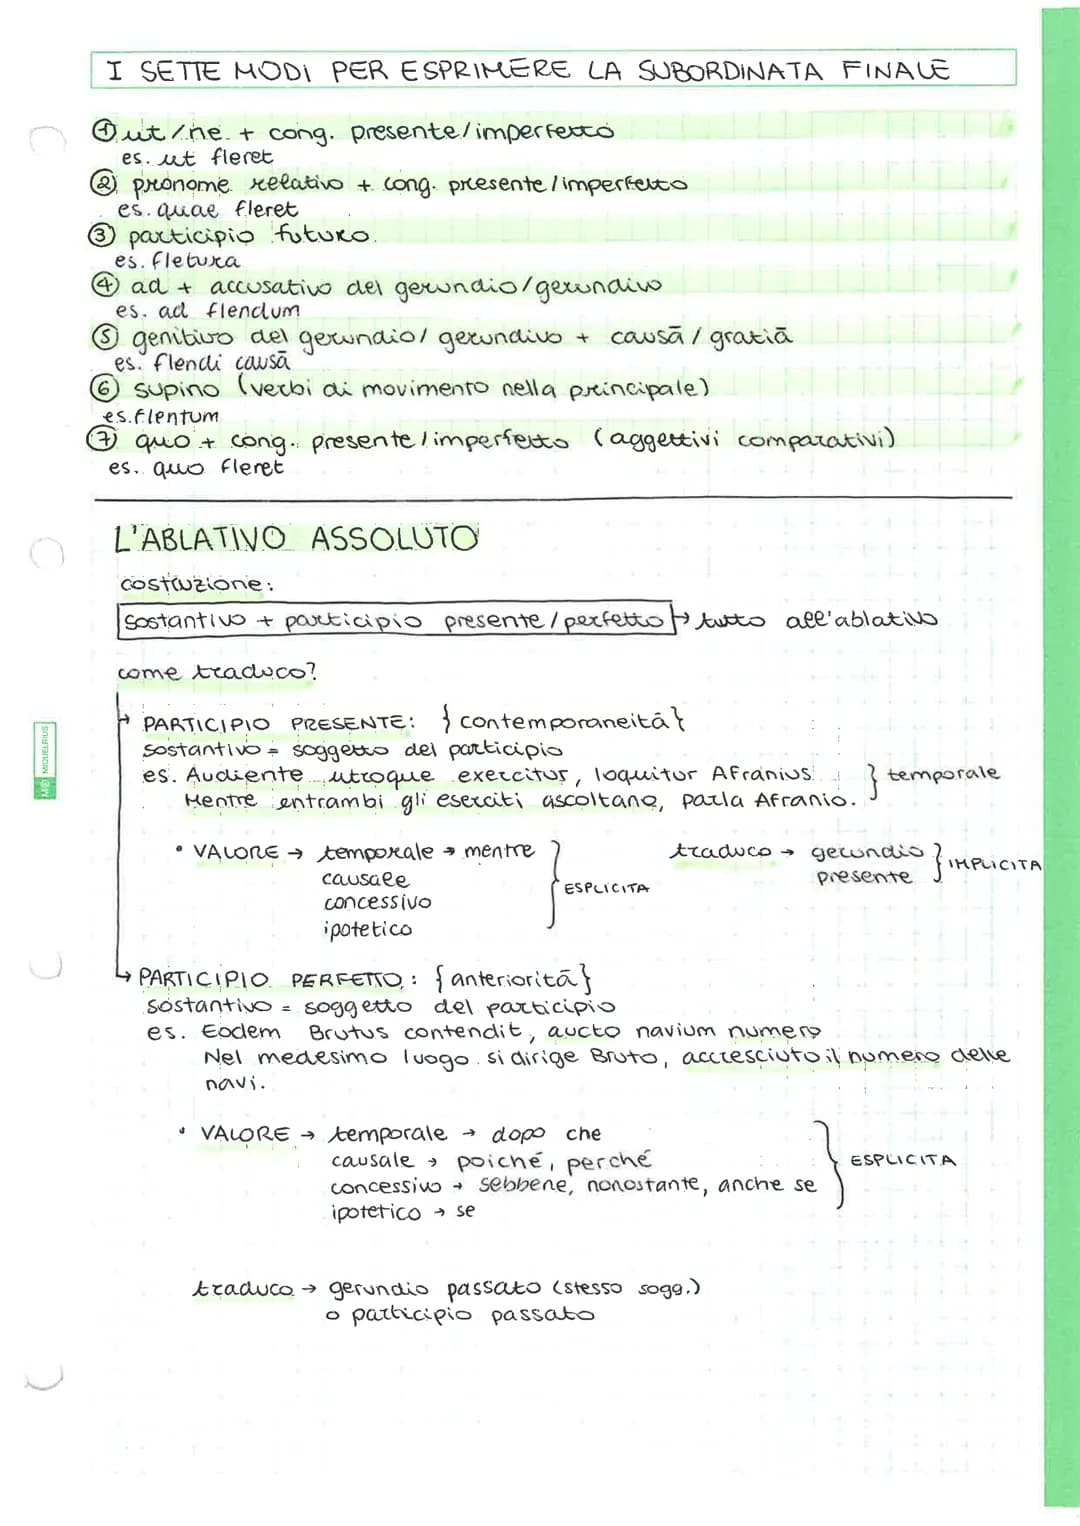 I SETTE MODI PER ESPRIMERE LA SUBORDINATA FINALE
① ut/ne + cong. presente/imperfetto
es. ut fleret
② pronome relativo + cong. presente/imperfetto
es. quae fleret
③ participio futuro.
es. fletura
④ ad + accusativo del gerundio/gerundivo
es. ad flendum
⑤ genitivo del gerundio/gerundivo + causā/gratiā
es. flendi causā
⑥ supino (verbi di movimento nella principale)
es. flentum
⑦ quo + cong. presente/imperfetto (aggettivi comparativi)
es. quo fleret
L'ABLATIVO ASSOLUTO
costruzione:
sostantivo + participio presente/perfetto → tutto all'ablativo
come traduco?
→ PARTICIPIO PRESENTE: {contemporaneità}
sostantivo = soggetto del participio
es. Audiente utroque exercitur, loquitur Afranius. } temporale
Mentre entrambi gli eserciti ascoltano, parla Afranio.
• VALORE → temporale → mentre traduco → gerundio } IMPLICITA
causale } ESPLICITA presente
concessivo
ipotetico
→ PARTICIPIO PERFETTO: {anteriorità}
sostantivo = soggetto del participio
es. Eodem Brutus contendit, aucto navium numero
Nel medesimo luogo si dirige Bruto, accresciuto il numero delle
navi.
• VALORE → temporale → dopo che
causale → poiché, perché } ESPLICITA
concessivo → sebbene, nonostante, anche se
ipotetico → se
traduco → gerundio passato (stesso sogg.)
o participio passato
MIQUELRIUS